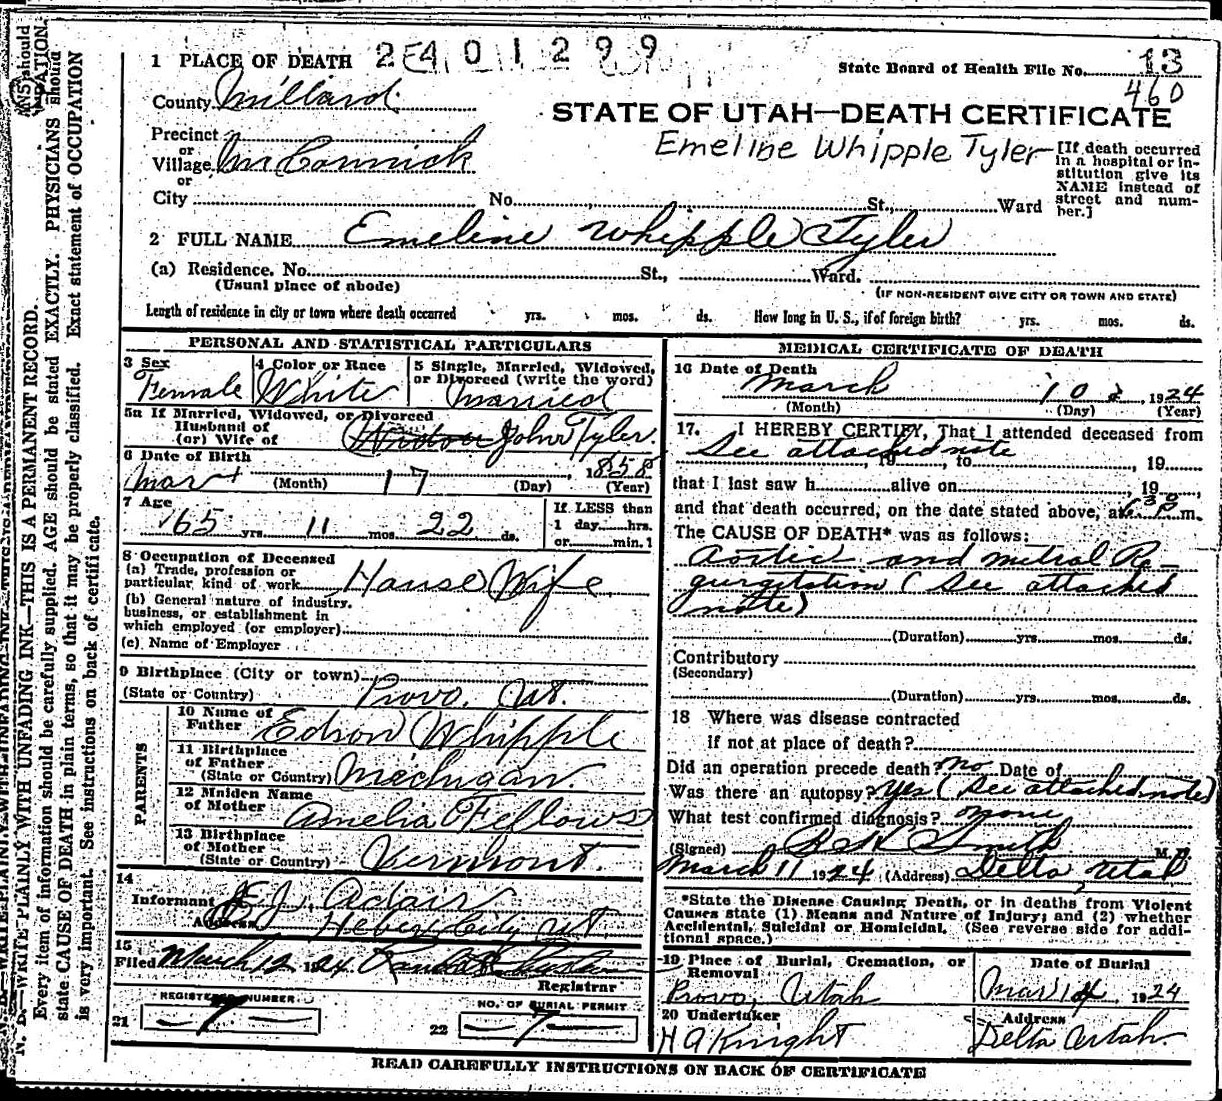 2401299
1 PLACE OF DEATH
State Board of Health File No. 13
460
County Millard
STATE OF UTAH—DEATH CERTIFICATE
Precinct
or
Village McCornick
or
Emeline Whipple Tyler
[If death occurred in a hospital or in-
stitution give its
NAME instead of
street and num-
ber.]
City No. St., Ward
2 FULL NAME Emeline Whipple Tyler
(a) Residence. No. St., Ward.
(Usual place of abode)
(IF NON-RESIDENT GIVE CITY OR TOWN AND STATE)
Length of residence in city or town where death occurred yrs. mos. ds. How long in U. S., if of foreign birth? yrs. mos. ds.
PERSONAL AND STATISTICAL PARTICULARS
3 Sex
Female
4 Color or Race
White
5 Single, Married, Widowed,
or Divorced (write the word)
Married
5a If Married, Widowed, or Divorced
Husband of
(or) Wife of John Tyler.
6 Date of Birth
Mar 17 1858
(Month) (Day) (Year)
7 Age
65 yrs. 11 mos. 22 ds.
If LESS than
1 day hrs.
or min.?
8 Occupation of Deceased
(a) Trade, profession or
particular, kind of work House Wife
(b) General nature of industry,
business, or establishment in
which employed (or employer)
(c) Name of Employer
9 Birthplace (City or town)
(State or Country) Provo, Ut.
PARENTS
10 Name of
Father Edson Whipple
11 Birthplace
of Father
(State or Country) Mechigan.
12 Maiden Name
of Mother Amelia Fellows
13 Birthplace
of Mother
(State or Country) Vermont.
14
Informant J. Adair
Address Heber City Ut.
15
Filed March 12 1924
Registrar
REGISTERED NUMBER
21 7
NO. OF BURIAL PERMIT
22 7
MEDICAL CERTIFICATE OF DEATH
16 Date of Death
March 10 1924
(Month) (Day) (Year)
17. I HEREBY CERTIFY, That I attended deceased from
See attached note, 19, to, 19
that I last saw h alive on, 19,
and that death occurred, on the date stated above, at 30 P m.
The CAUSE OF DEATH* was as follows:
Aortic and mitral Re-
gurgitation (See attached
note)
(Duration) yrs. mos. ds.
Contributory
(Secondary)
(Duration) yrs. mos. ds.
18 Where was disease contracted
if not at place of death?
Did an operation precede death? No Date of
Was there an autopsy? Yes (See attached note)
What test confirmed diagnosis? None
(Signed) Smith M. D.
March 11 1924 (Address) Delta, Utah
*State the Disease Causing Death, or in deaths from Violent
Causes state (1) Means and Nature of Injury; and (2) whether
Accidental, Suicidal or Homicidal. (See reverse side for addi-
tional space.)
19 Place of Burial, Cremation, or
Removal
Provo, Utah
Date of Burial
Mar 14 1924
20 Undertaker
H A Knight
Address
Delta Utah
READ CAREFULLY INSTRUCTIONS ON BACK OF CERTIFICATE
N. B.—WRITE PLAINLY WITH UNFADING INK—THIS IS A PERMANENT RECORD.
Every item of information should be carefully supplied. AGE should be stated EXACTLY. PHYSICIANS should
state CAUSE OF DEATH in plain terms, so that it may be properly classified. Exact statement of OCCUPATION
is very important. See instructions on back of certificate.